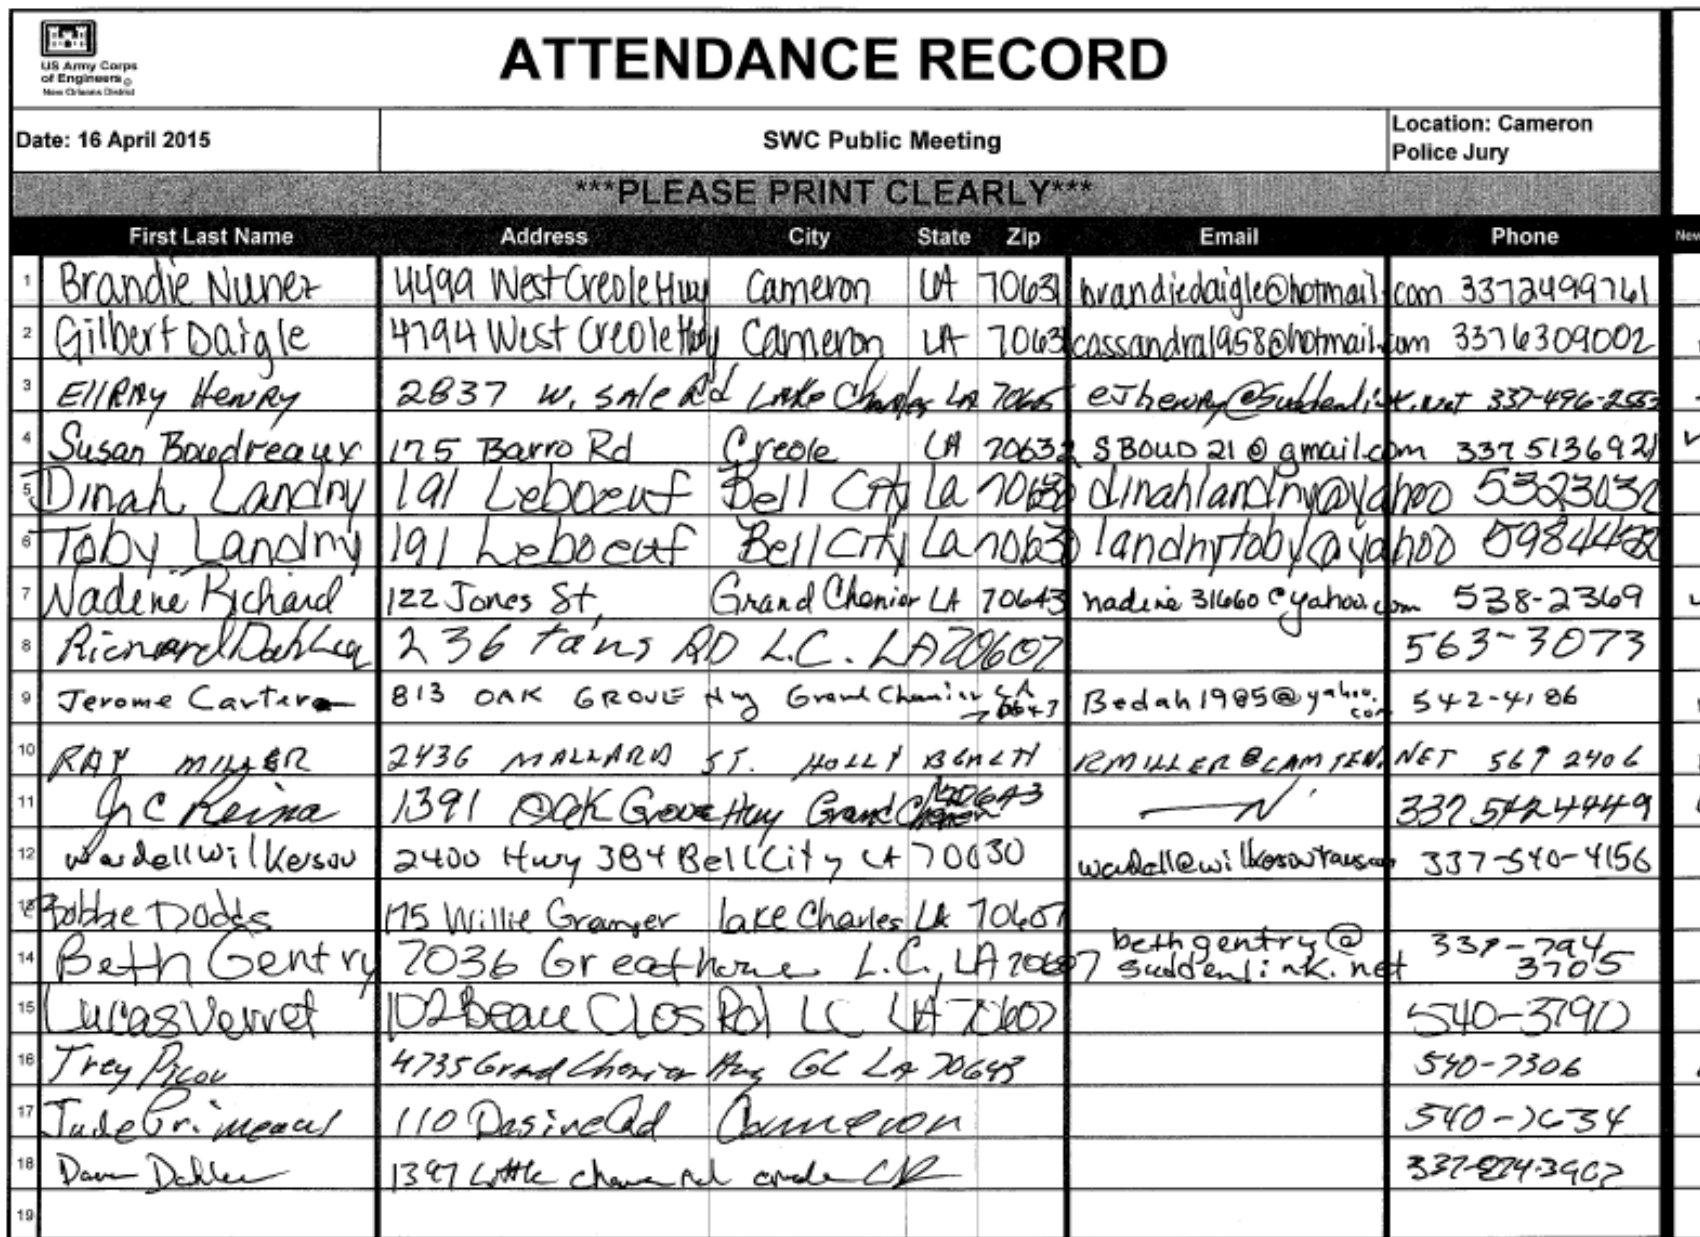 US Army Corps
of Engineers®
New Orleans District
ATTENDANCE RECORD
Date: 16 April 2015
SWC Public Meeting
Location: Cameron
Police Jury
***PLEASE PRINT CLEARLY***
First Last Name Address City State Zip Email Phone New
1 Brandie Nunez 4499 West Creole Hwy Cameron LA 70631 brandiedaigle@hotmail.com 3372499761
2 Gilbert Daigle 4794 West Creole Hwy Cameron LA 70631 cassandra1958@hotmail.com 3376309002
3 EllRAy HeNRy 2837 W. SAle Rd LAKe Charles LA 70605 eJhenry@Suddenlink.net 337-496-2553
4 Susan Boudreaux 175 Barro Rd Creole LA 70632 SBOUD21@gmail.com 337 5136921
5 Dinah Landry 191 Leboeuf Bell City La 70630 dinahlandry@yahoo 5323032
6 Toby Landry 191 Leboeuf Bell City La 70630 landrytoby@yahoo
7 Nadine Richard 122 Jones St, Grand Chenier LA 70643 nadine31660@yahoo.com 538-2369
8 236 RD L.C. LA 70607 563-3073
9 Jerome Carter 813 OAK GROVE Hwy Grand Chenier LA 70643 Bedah1985@yahoo.com 542-4186
10 RAY MILLER 2436 MALLARD ST. HOLLY BEACH RMILLER@CAMTEL.NET 569 2406
11 Reina 1391 Oak Grove Hwy Grand Chenier 70643 337 542 4449
12 Wardell Wilkerson 2400 Hwy 384 Bell City LA 70630 337-540-4156
13 Bobbie Dodds 175 Willie Granger Lake Charles LA 70607
14 Beth Gentry 7036 Greathouse L.C., LA 70607 bethgentry@
suddenlink.net 337-794-
3705
15 Lucas Verret 102 Beau Clos Rd LC LA 70607 540-3790
16 Trey Picou 4735 Grand Chenier Hwy GC LA 70643 540-7306
17 Jude Primeaux 110 Cameron 540-7634
18 1397 Little
19